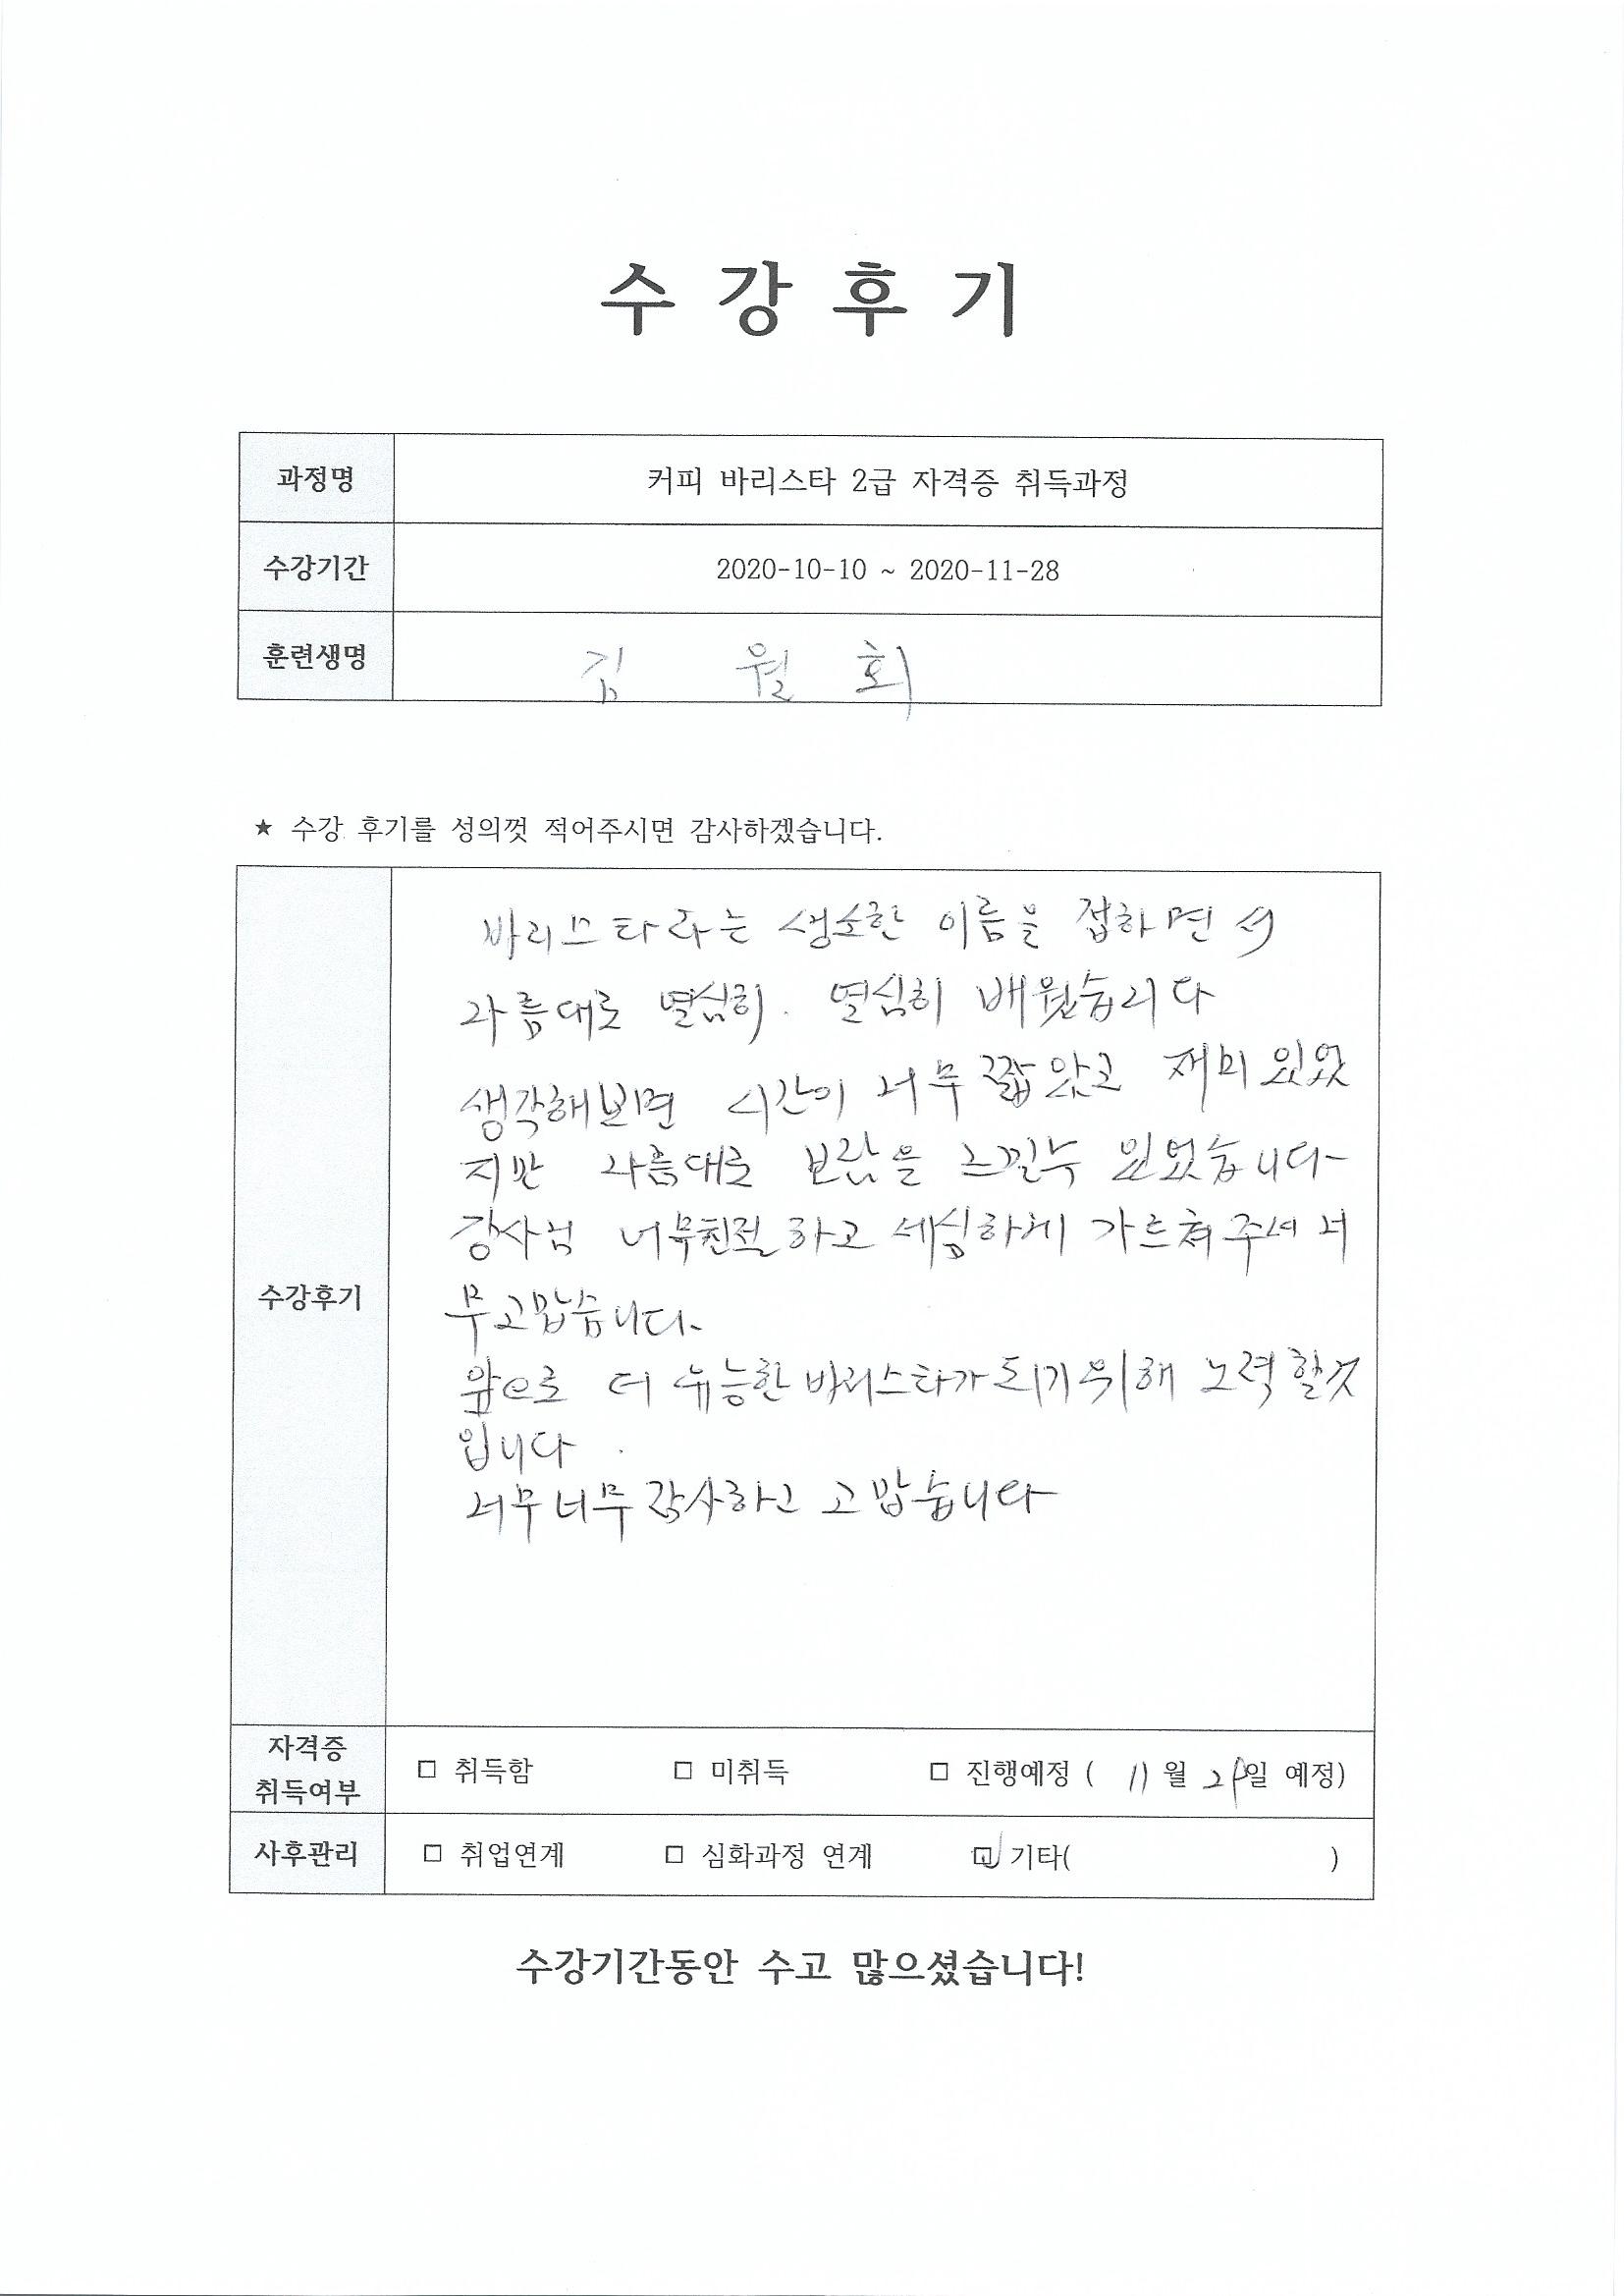 수 강 후 기
과정명 커피 바리스타 2급 자격증 취득과정
수강기간 2020-10-10 ~ 2020-11-28
훈련생명 김 월 회
★ 수강 후기를 성의껏 적어주시면 감사하겠습니다.
수강후기
바리스타라는 생소한 이름을 접하면서
나름대로 열심히. 열심히 배웠습니다
생각해보면 시간이 너무 짧았고 재미있었
지만 나름대로 보람을 느낄수 있었습니다
강사님 너무친절하고 세심하게 가르쳐주셔 너
무고맙습니다.
앞으로 더 유능한 바리스타가 되기위해 노력할것
입니다.
너무너무 감사하고 고맙습니다
자격증
취득여부
□ 취득함 □ 미취득 □ 진행예정 ( 11월 29일 예정)
사후관리 □ 취업연계 □ 심화과정 연계 ☑ 기타( )
수강기간동안 수고 많으셨습니다!